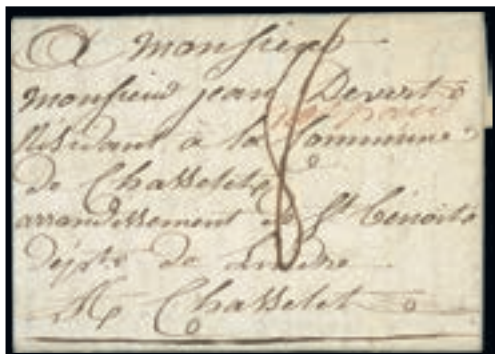 A Monsieur
monsieur jean Devert
Résidant à la Commune
de Chasselet
arrondissement de St benoits
dépte de Lindre
A Chasselet
8